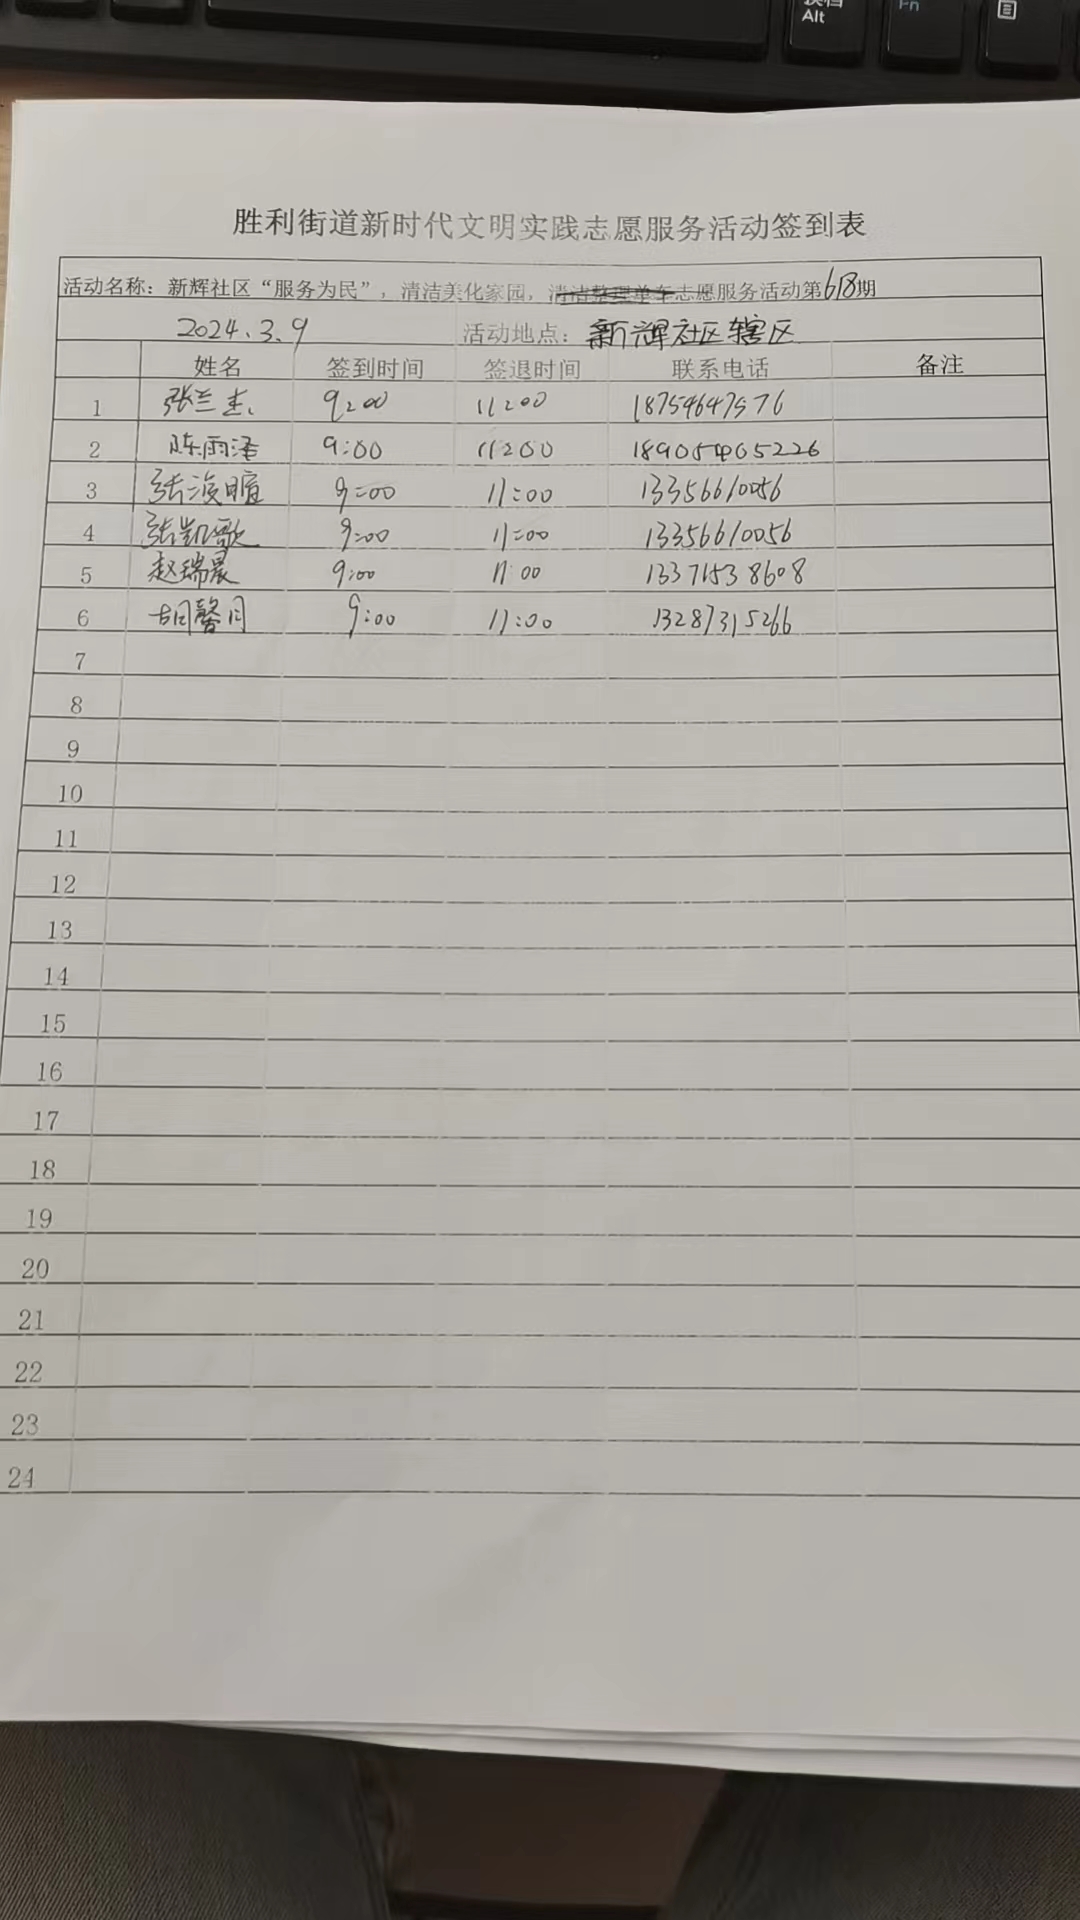 Alt
Fn
胜利街道新时代文明实践志愿服务活动签到表
活动名称：新辉社区“服务为民”，清洁美化家园，清洁整理单车志愿服务活动第618期
2024.3.9 活动地点：新辉社区辖区
姓名 签到时间 签退时间 联系电话 备注
1 张兰杰 9:00 11:00 18754647576
2 陈雨泽 9:00 11:00 18905465226
3 张浚暄 9:00 11:00 13356610056
4 张凯歌 9:00 11:00 13356610056
5 赵瑞晨 9:00 11:00 13371538608
6 胡馨月 9:00 11:00 13287315266
7
8
9
10
11
12
13
14
15
16
17
18
19
20
21
22
23
24